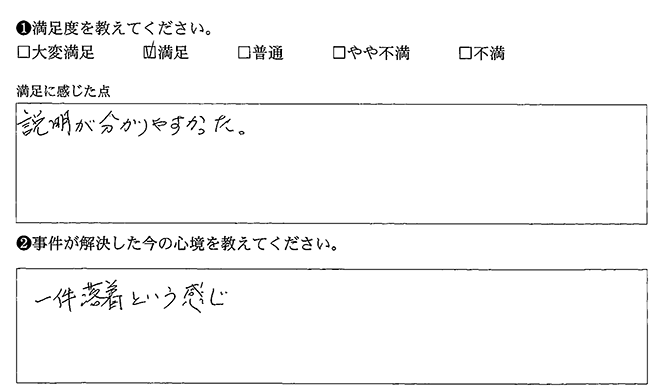 ❶満足度を教えてください。
□大変満足 ☑満足 □普通 □やや不満 □不満
満足に感じた点
説明が分かりやすかった。
❷事件が解決した今の心境を教えてください。
一件落着という感じ